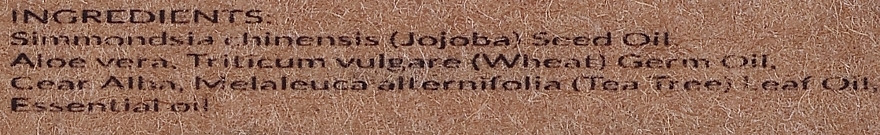 INGREDIENTS:
Simmondsia chinensis (Jojoba) Seed Oil,
Aloe vera, Triticum vulgare (Wheat) Germ Oil,
Cear Alba, Melaleuca alternifolia (Tea Tree) Leaf Oil,
Essential oil